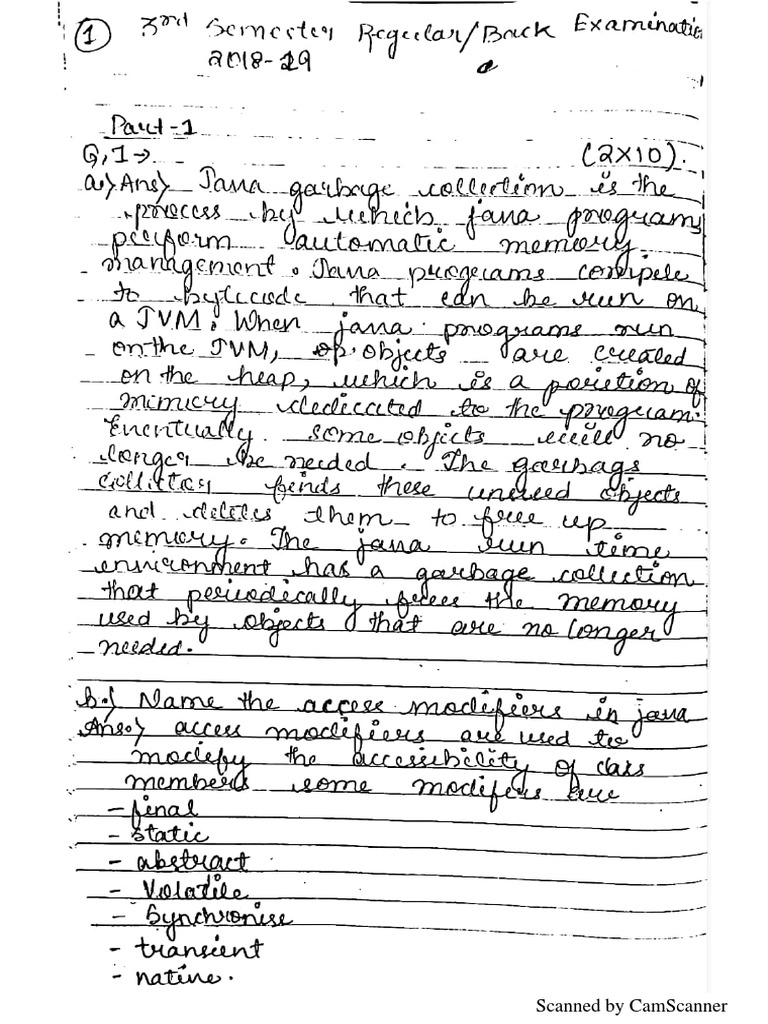 1 3rd Semester Regular/Back Examinatio
2018-19
Part-1
Q.1→ (2×10).
a.) Ans) Java garbage collection is the
process by which java programs
perform automatic memory
management. Java programs compile
to bytecode that can be run on
a JVM. When java programs run
on the JVM, objects are created
on the heap, which is a portion of
memory dedicated to the program.
Eventually some objects will no
longer be needed. The garbage
collector finds these unused objects
and deletes them to free up
memory. The java run time
environment has a garbage collection
that periodically frees the memory
used by objects that are no longer
needed.
b.) Name the access modifiers in java
Ans.) access modifiers are used to
modify the accessibility of class
members some modifiers are
- final
- static
- abstract
- Volatile
- Synchronise
- transient
- native.
Scanned by CamScanner